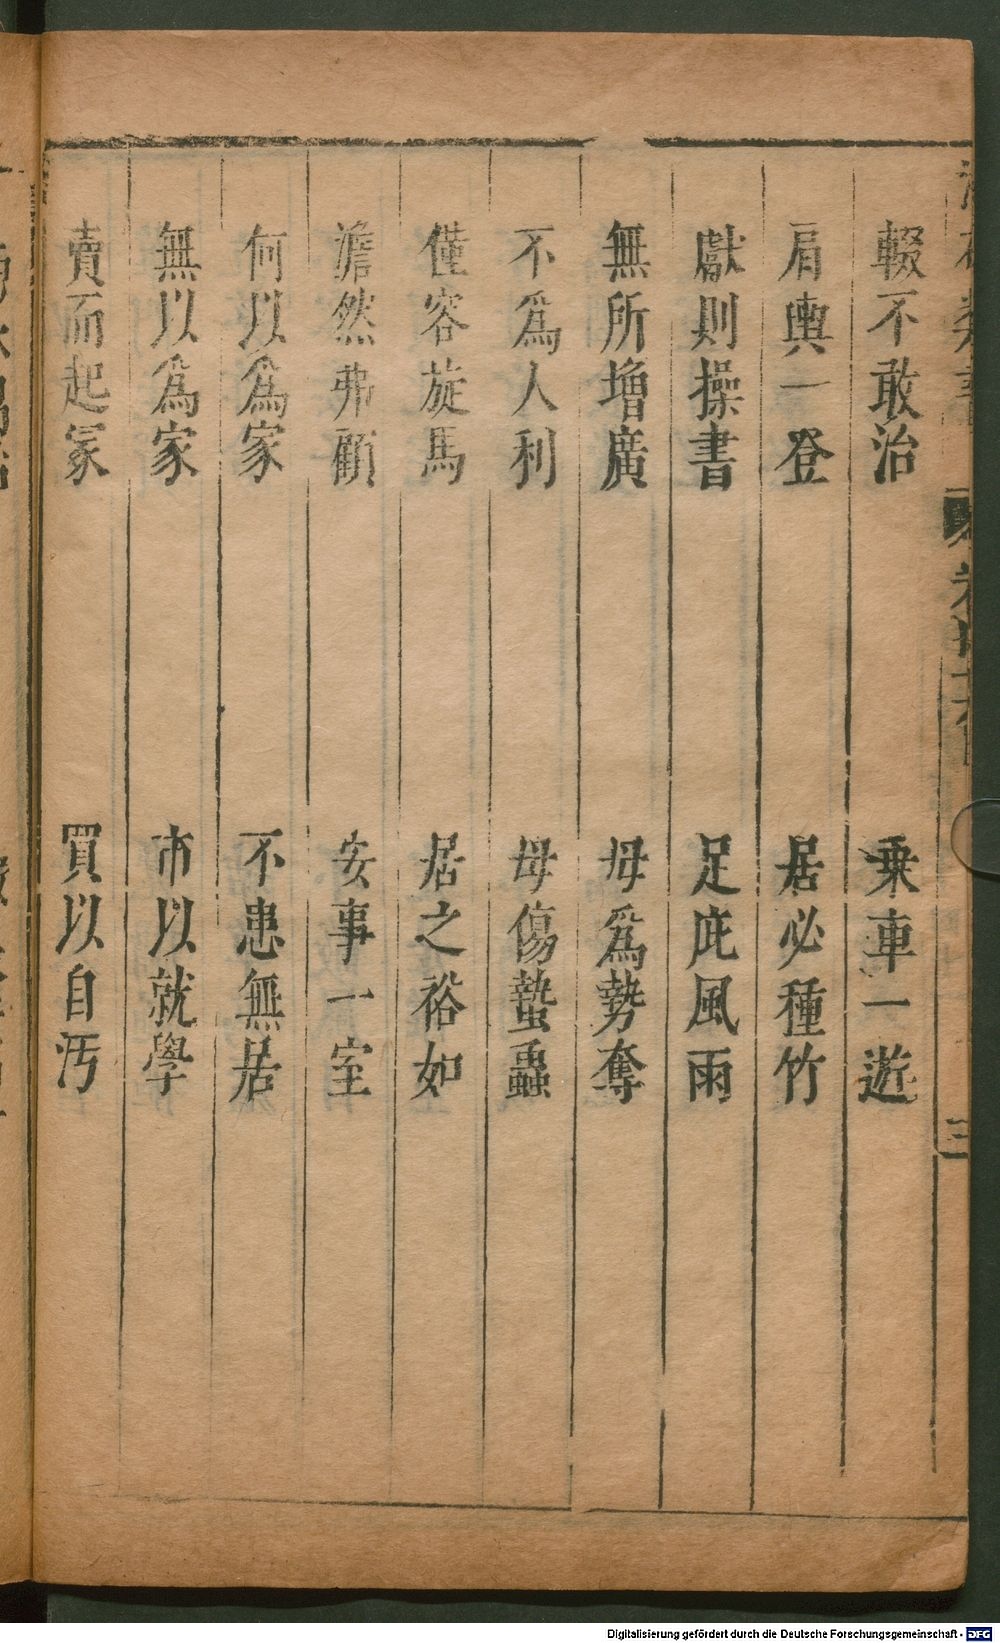 輟不敢治　乗車一遊
肩輿一登　居必種竹
獻則操書　足庇風雨
無所增廣　毋爲勢奪
不爲人利　毋傷蟄蟲
僅容旋馬　居之裕如
澹然弗顧　安事一室
何以爲家　不患無居
無以爲家　市以就學
賣而起冢　買以自汚
三
Digitalisierung gefördert durch die Deutsche Forschungsgemeinschaft - DFG